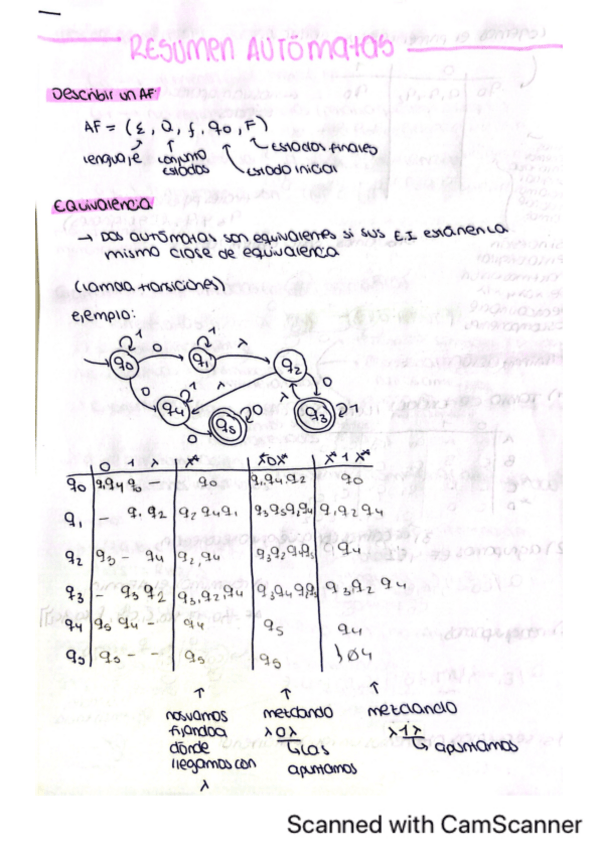 RESUMEN AUTÓMATAS
Describir un AF
AF = (Σ, Q, f, q0, F)
lenguaje conjunto estados estado inicial estados finales
EQUIVALENCIA
→ DOS AUTÓMATAS SON equivalentes si sus E.I. están en la
misma clase de equivalencia
(lamda transiciones)
ejemplo:
1 0 1 λ
q0 q1 q2
0 1 λ λ 0
q4 q5 0 q3 1
0
0 1 λ λ* λ*0λ* λ*1λ*
q0 q1q4 q0 - q0 q1q4q2 q0
q1 - q1 q2 q2q4q1 q1q2q4
q2 q3 - q4 q2,q4 q4
q3 - q3 q2 q3,q2q4 q3q2q4
q4 q5 q4 - q4 q5 q4
q5 q5 - - q5 q5
↑ ↑ ↑
nos vamos metiendo metiendo
fijando a λ0λ λ1λ
dónde las apuntamos
llegamos con apuntamos
λ
Scanned with CamScanner